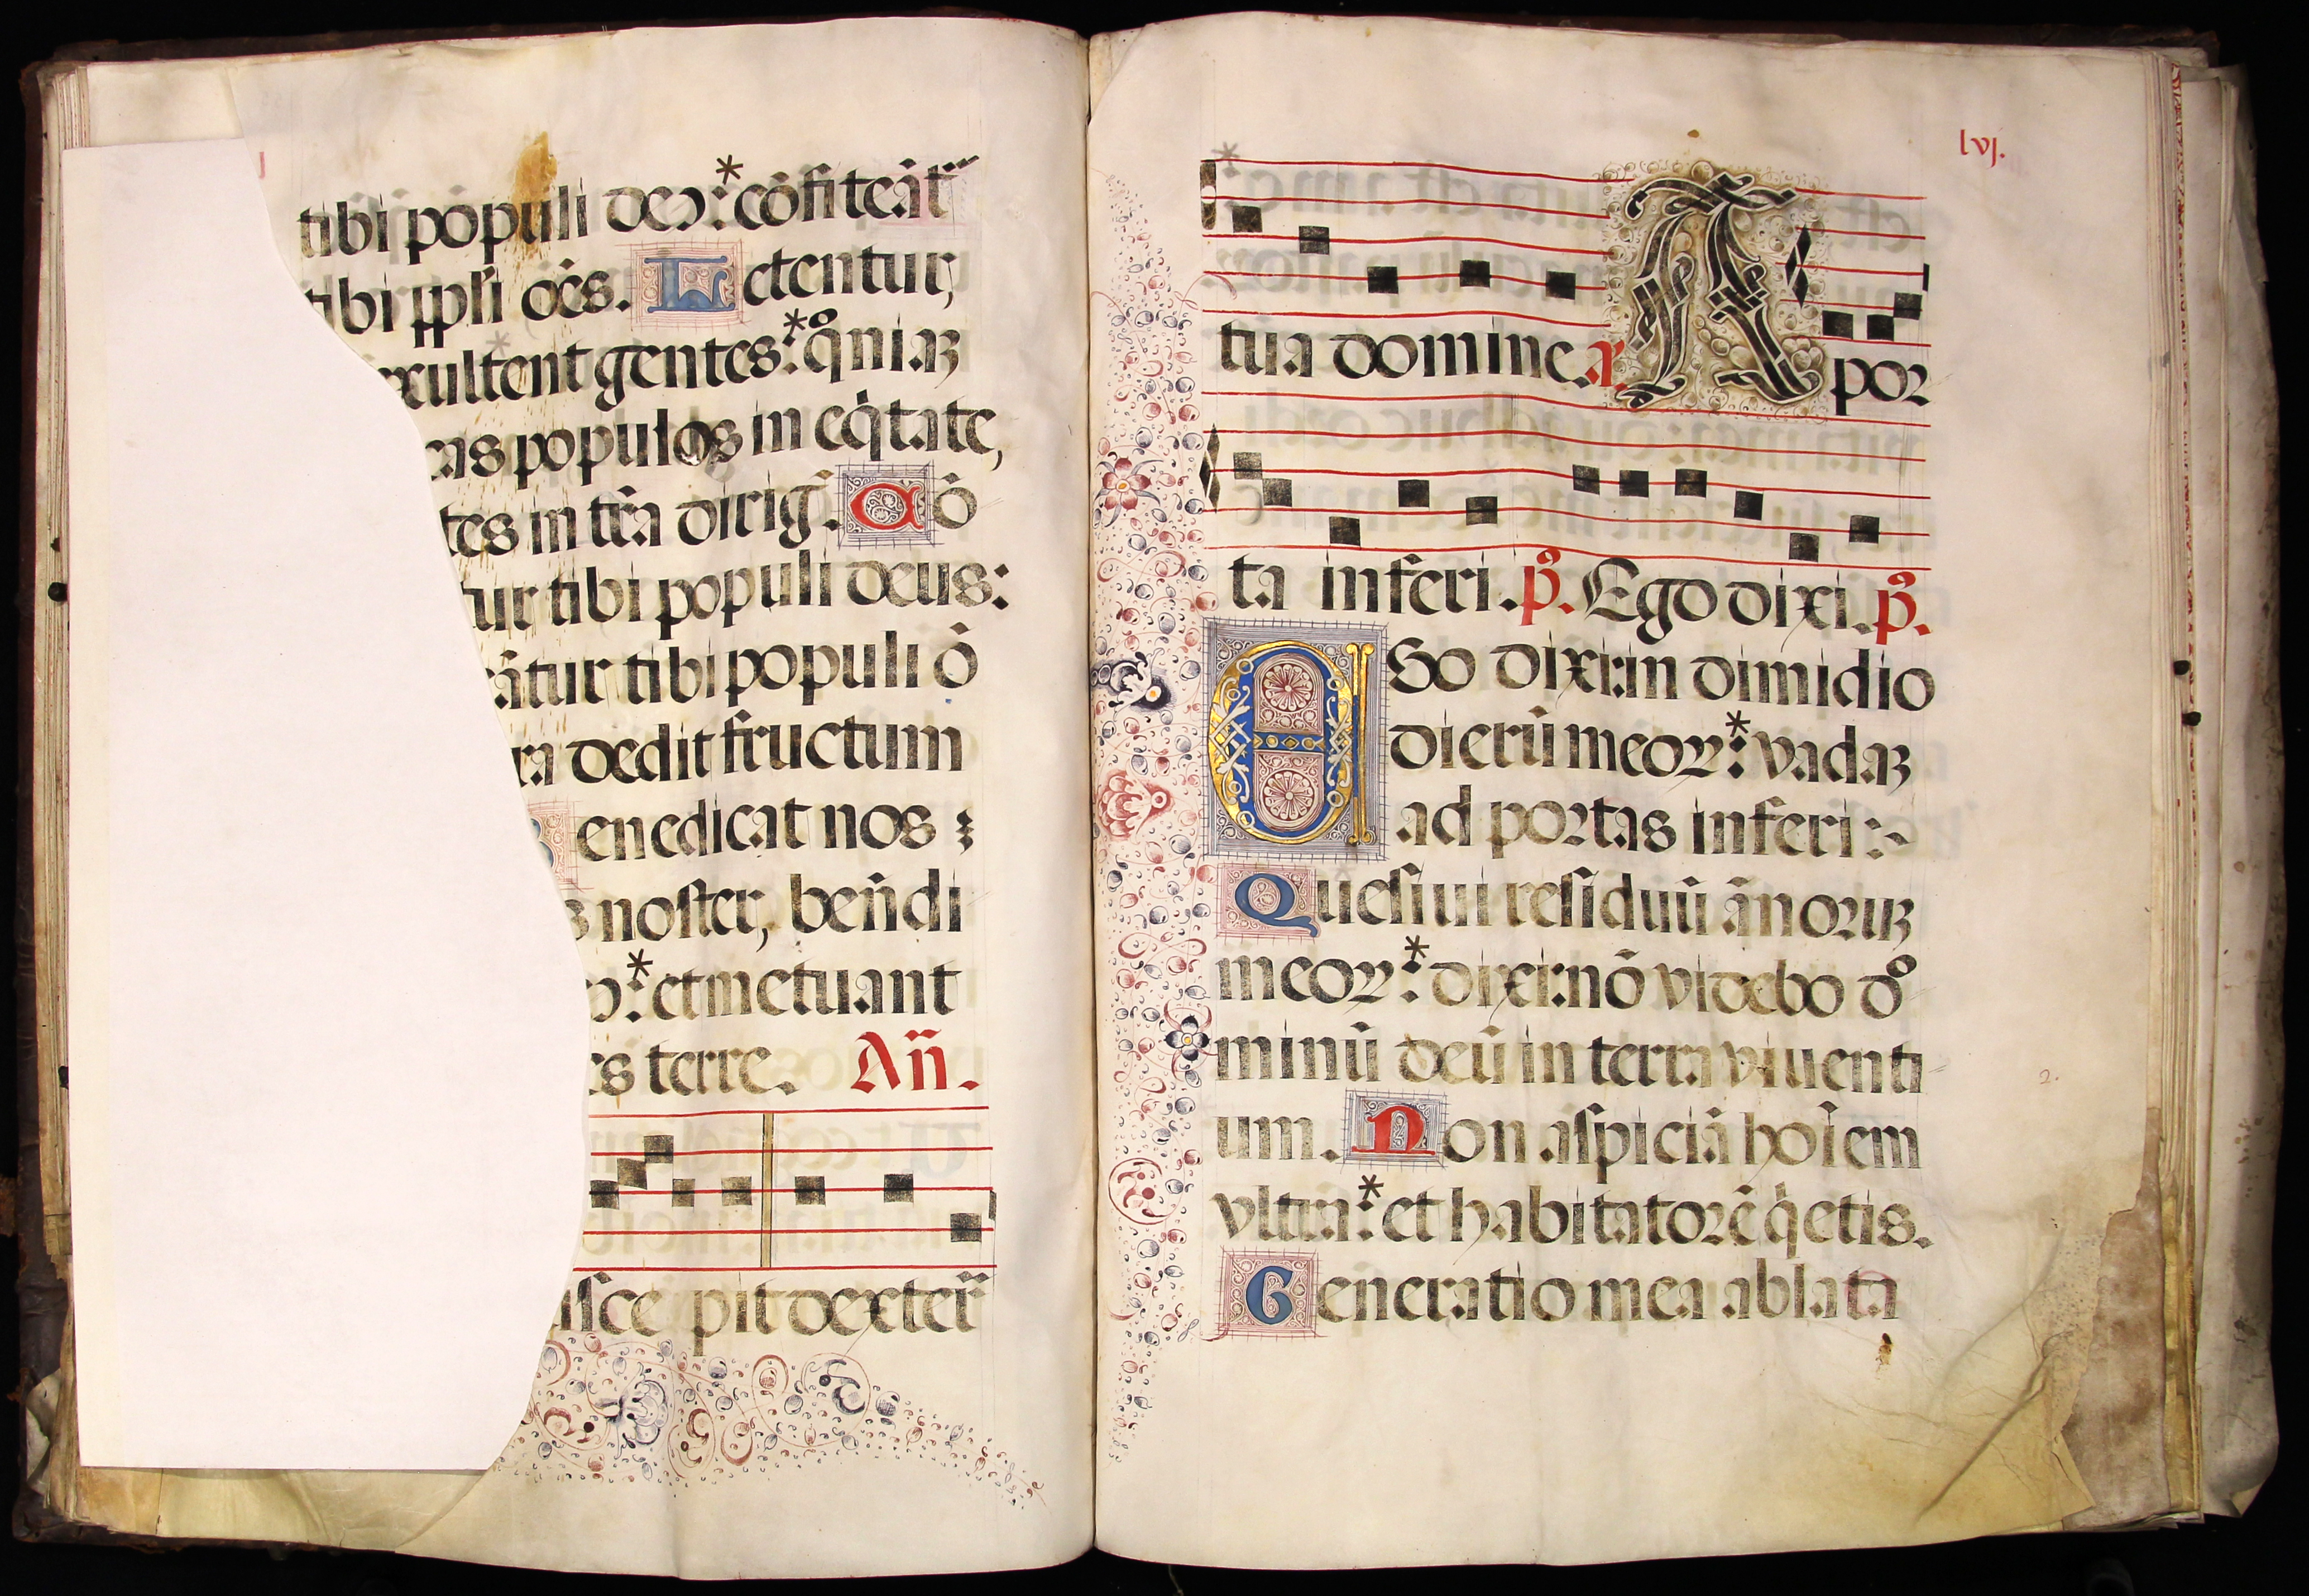 tibi pōpuli deꝰ: * cōfiteāt᷑
tibi ppl̄i oēs. Letentur,
exultent gentes: * qᷣniaꝫ
populos in eq̄tate,
in tr̄a dirig̃. Cō
tibi populi deus:
tibi populi ō
dedit fructum
Benedicat nos:
noster, ben̄di
: * et metuant
terre. An̄.
pit dexter̃
lvj.
tua domine. a. A por
ta inferi. p̃s. Ego dixi. p̃s.
EGo dixi: in dimidio
dierū meoꝝ: * vadaꝫ
ad portas inferi:
Quesiui residuū ānoruꝫ
meoꝝ: * dixi: nō videbo do
minū deū in terra viuenti
um. Non aspiciā hoīem
vltra: * et habitatorē q̇etis.
Generatio mea ablata
2.